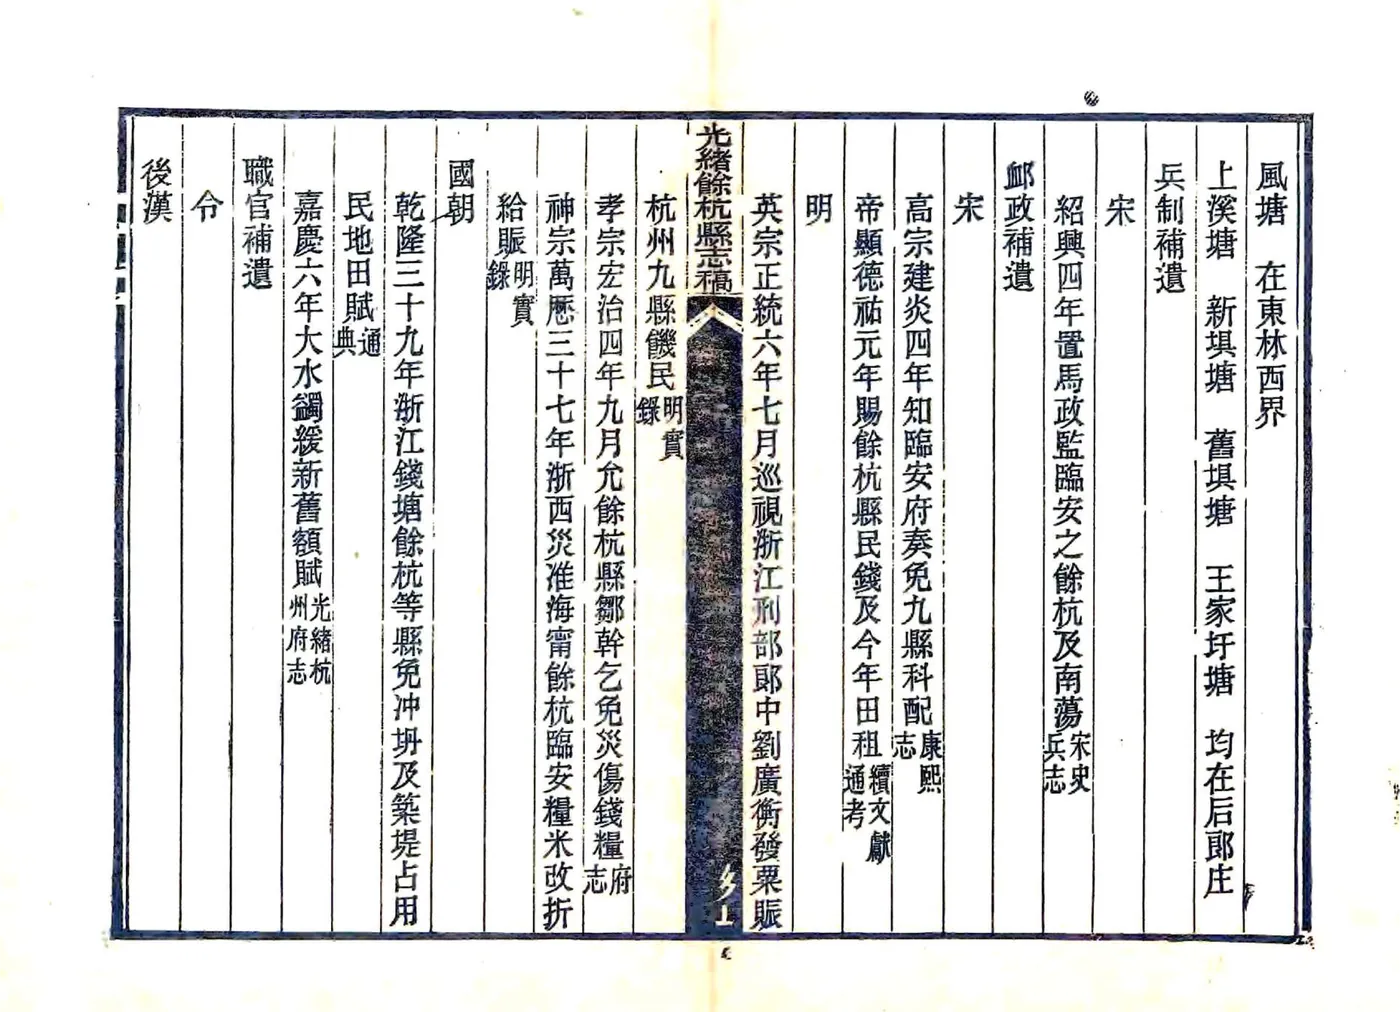 風塘　在東林西界
上溪塘　新塤塘　舊塤塘　王家圩塘　均在后郎庄
兵制補遺
宋
紹興四年置馬政監臨安之餘杭及南蕩宋史兵志
卹政補遺
宋
高宗建炎四年知臨安府奏免九縣科配康熙志
帝顯德祐元年賜餘杭縣民錢及今年田租續文獻通考
明
英宗正統六年七月巡視浙江刑部郎中劉廣衡發粟賑
光緒餘杭縣志稿
杭州九縣饑民明實錄
孝宗宏治四年九月允餘杭縣鄒幹乞免災傷錢糧府志
神宗萬厯三十七年浙西災准海甯餘杭臨安糧米改折
給賑明實錄
國朝
乾隆三十九年浙江錢塘餘杭等縣免冲坍及築堤占用
民地田賦通典
嘉慶六年大水蠲緩新舊額賦光緒杭州府志
職官補遺
令
後漢